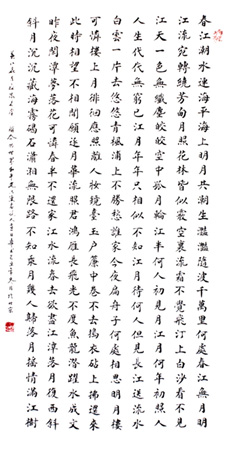 春江潮水連海平海上明月共潮生灩灩隨波千萬里何處春江無月明
江流宛轉繞芳甸月照花林皆似霰空裏流霜不覺飛汀上白沙看不見
江天一色無纖塵皎皎空中孤月輪江畔何人初見月江月何年初照人
人生代代無窮已江月年年只相似不知江月待何人但見長江送流水
白雲一片去悠悠青楓浦上不勝愁誰家今夜扁舟子何處相思明月樓
可憐樓上月徘徊應照離人妝鏡臺玉戶簾中卷不去搗衣砧上拂還來
此時相望不相聞願逐月華流照君鴻雁長飛光不度魚龍潛躍水成文
昨夜閒潭夢落花可憐春半不還家江水流春去欲盡江潭落月復西斜
斜月沉沉藏海霧碣石瀟湘無限路不知乘月幾人歸落月搖情滿江樹